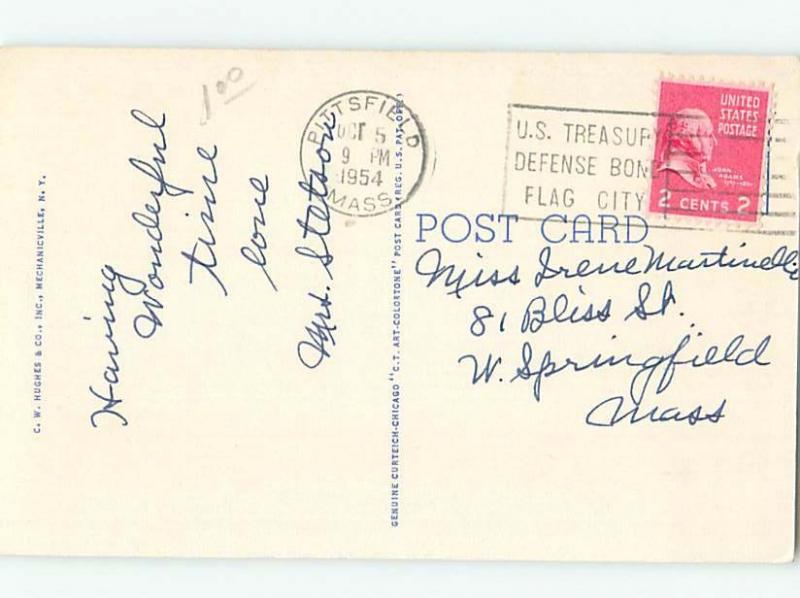 1.00
Having
Wonderful
time
love
Mrs. Stetson
C. W. HUGHES & CO., INC., MECHANICVILLE, N. Y.
GENUINE CURTEICH-CHICAGO "C.T. ART-COLORTONE" POST CARD (REG. U.S. PAT. OFF.)
PITTSFIELD
OCT 5
9 PM
1954
MASS.
U.S. TREASURY
DEFENSE BOND
FLAG CITY
UNITED
STATES
POSTAGE
JOHN
ADAMS
2 CENTS 2
POST CARD
Miss Irene Martinelli
81 Bliss St.
W. Springfield
Mass